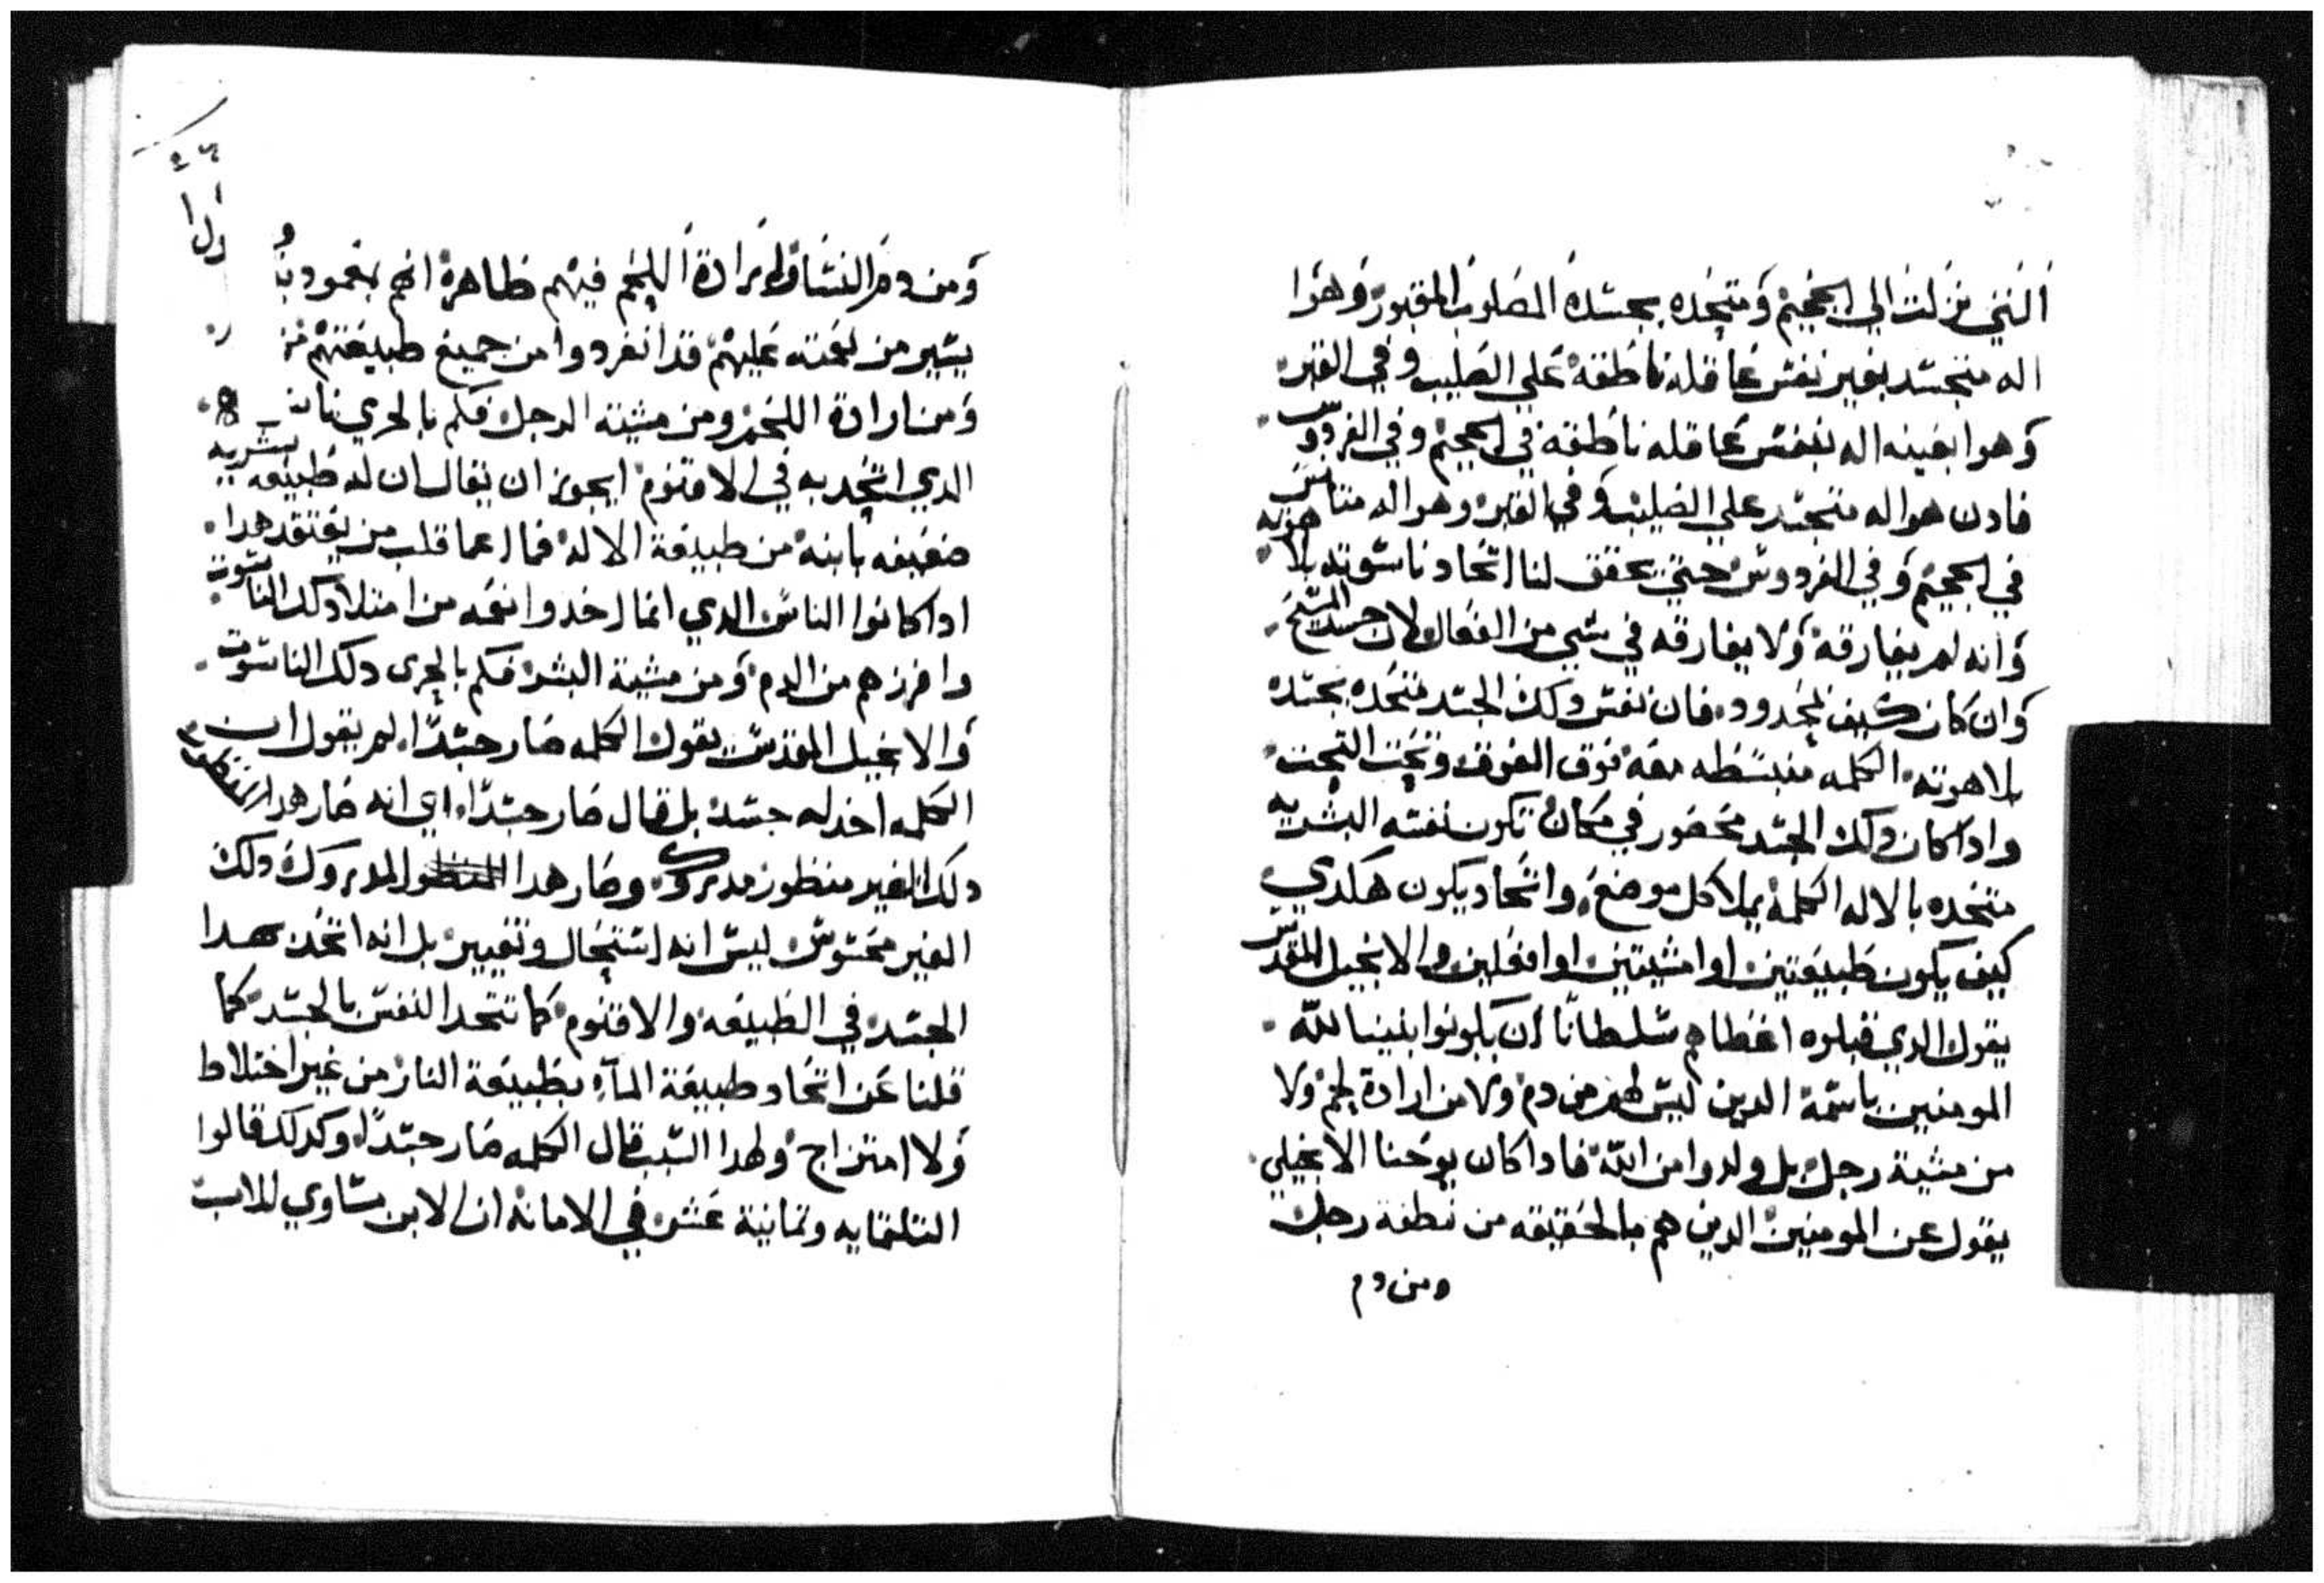 التي نزلت الي الجحيم ومتحده بجسده المصلوب المقبور وهوا
اله متجسد بغير نفس عاقله ناطقه علي الصليب وفي القبر
وهوا بعينه اله بنفس عاقله ناطقه في الجحيم وفي الفردوس
فادن هو اله متجسد علي الصليب وفي القبر وهو اله متانس
في الجحيم وفي الفردوس حتي يحقق لنا اتحاد ناسوته بلاهوته
وانه لم يفارقه ولا يفارقه في شي من الفعال لان جسد المسيح
وان كان كتيف محدود فان نفس دلك الجسد متحده بجسده
بلاهوته الكلمه منبسطه معه فوق الفوق وتحت التحت
وادا كان دلك الجسد محصور في مكان تكون نفسه البشريه
متحده بالاله الكلمة يملا كل موضع واتحاد يكون هكدي
كيف يكون طبيعتين او امشيتين او افعلين والانجيل المقدس
يقول الدي قبلوه اعطاهم سلطانا ان يكونوا بنين الله
المومنين باسمه الدين ليس لهم من دم ولا من ارادة لحم ولا
من مشية رجل بل ولدوا من الله فادا كان يوحنا الانجيلي
يقول عن المومنين الدين هم بالحقيقه من نطفة رجل
ومن دم
ومن دم النسا وارادة اللحم فيهم ظاهرة انهم بمعموديه
يسير من نعمته عليهم قد انفردوا من جميع طبيعتهم
ومن ارادة اللحم ومن مشية الرجل فكم بالحري
الدي اتحد به في الاقنوم ايجوز ان يقال ان له طبيعه بشريه
ضعيفه باينه من طبيعة الاله فما اعما قلب من يعتقد هدا
ادا كانوا الناس الدي انما اخدوا نعمه من امتلا دلك الناسوت
وافرزهم من الدم ومن مشية البشر فكم بالحرى دلك الناسوت
والانجيل المقدس يقول الكلمه صار جسدا لم يقول ان
الكلمه اخد له جسد بل قال صار جسدا اي انه صار هدا المنظور
دلك الغير منظور مدرك وصار هدا المدروك دلك
الغير محسوس ليس انه استحال وتغيير بل انه اتحد بهدا
الجسد في الطبيعه والاقنوم كما تتحد النفس بالجسد كما
قلنا عن اتحاد طبيعة المآء بطبيعة النار من غير اختلاط
ولا امتزاج ولهدا السبب قال الكلمه صار جسدا وكدلك قالوا
التلتمايه وتمانية عشر في الامانه ان الابن مساوي للاب